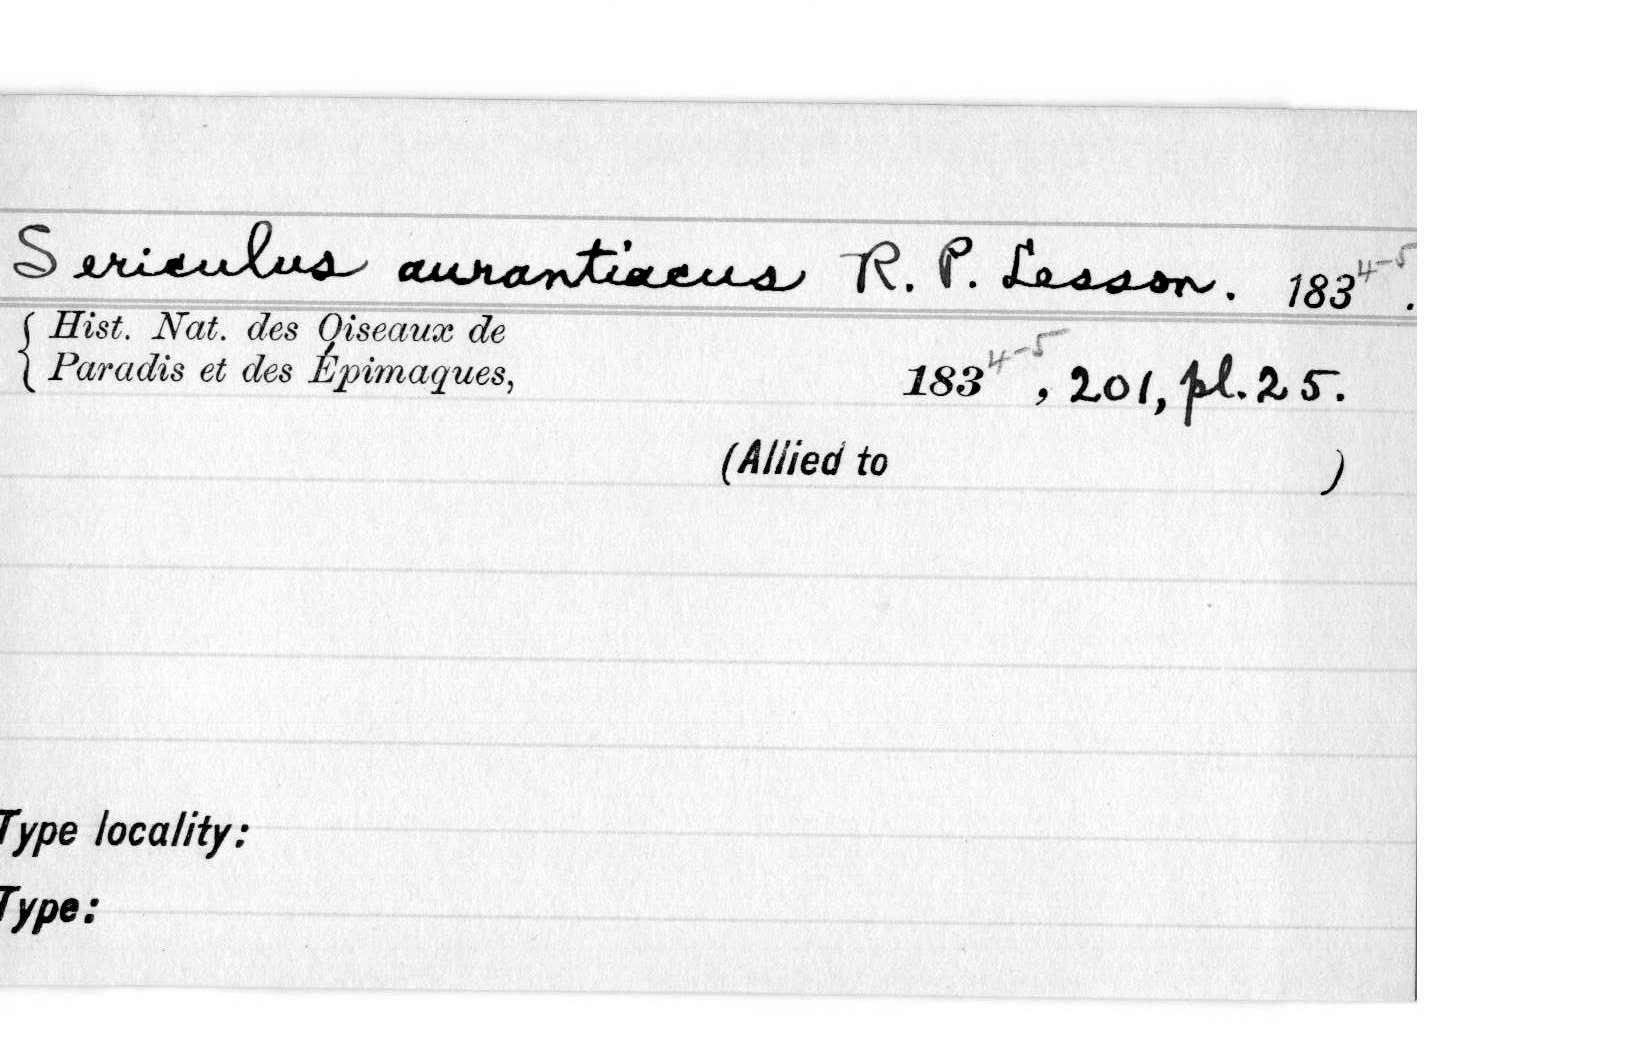 Sericulus aurantiacus R. P. Lesson. 1834-5.
Hist. Nat. des Oiseaux de
Paradis et des Épimaques, 1834-5, 201, pl. 25.
(Allied to )
Type locality:
Type: